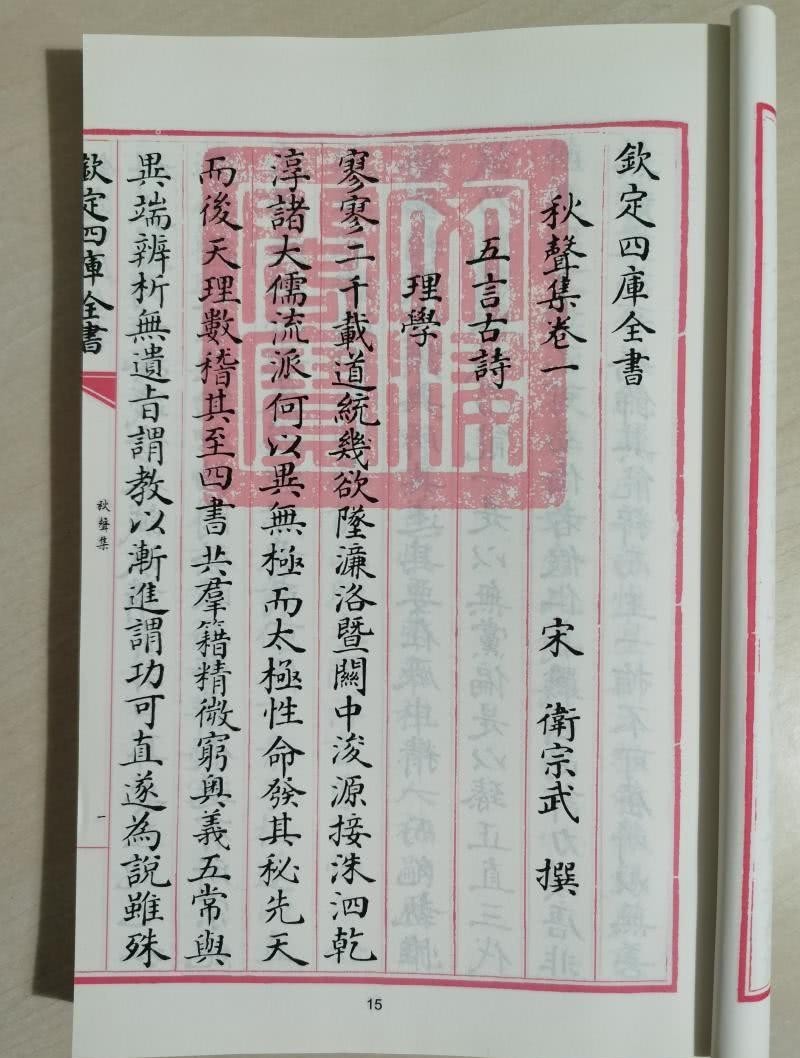 欽定四庫全書
秋聲集卷一 宋 衛宗武 撰
五言古詩
理學
寥寥二千載道統幾欲墜濂洛暨關中浚源接洙泗乾
淳諸大儒流派何以異無極而太極性命發其秘先天
而後天理數稽其至四書共羣籍精微窮奥義五常與
異端辨析無遺旨謂教以漸進謂功可直遂為說雖殊
欽定四庫全書
秋聲集
一
15